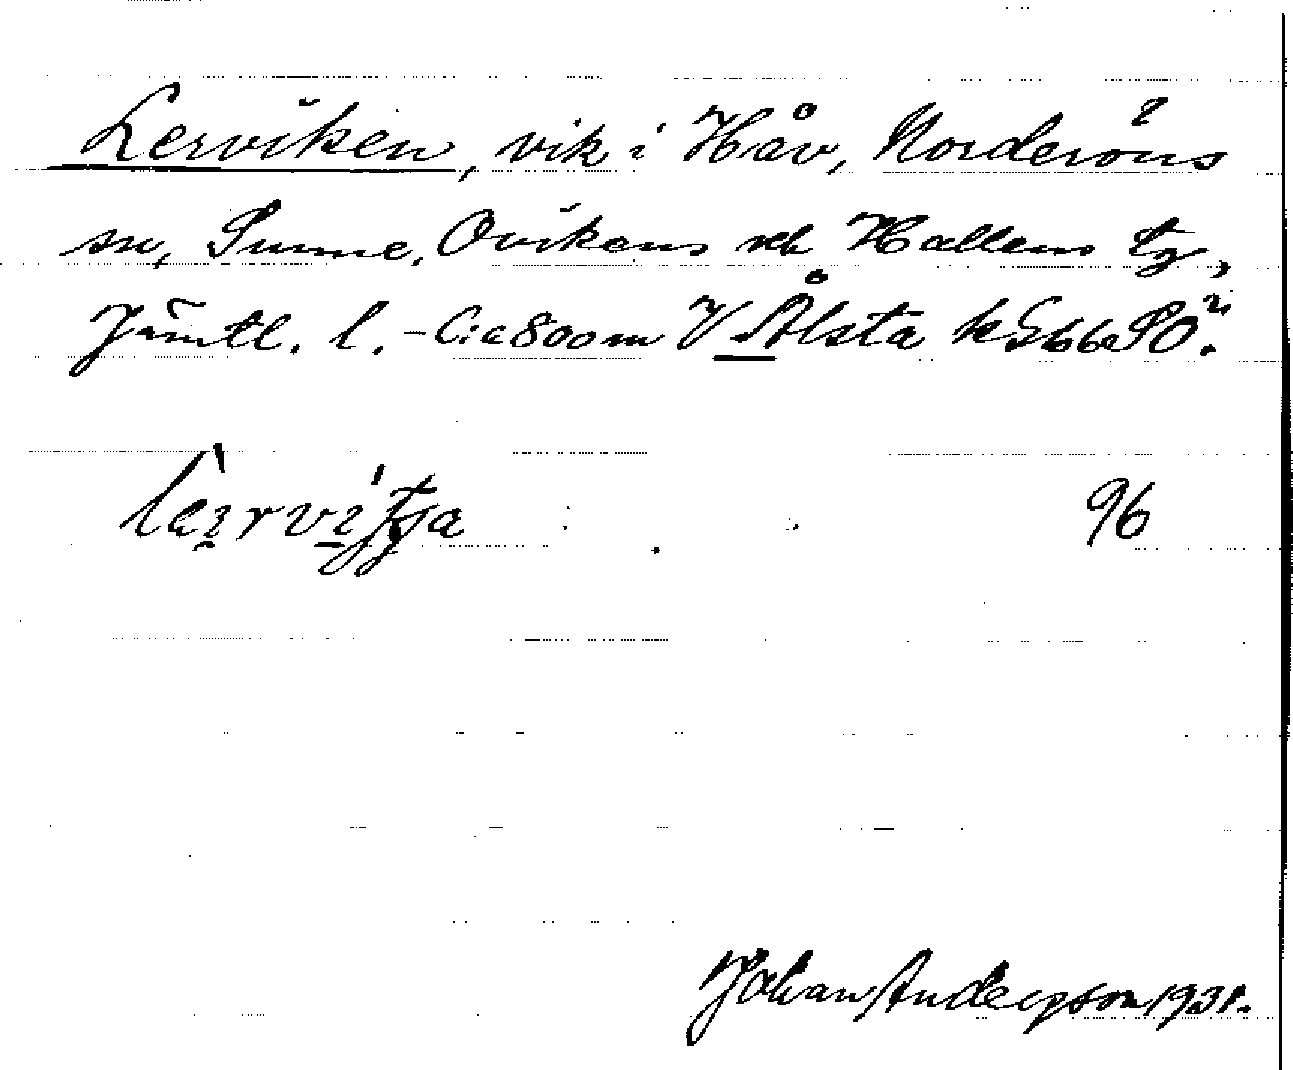 Lerviken, vik i Håv, Norderöns
sn, Sunne, Ovikens och Hallens tg,
Jämtl. l. - C:a 800 m V Ålsta k 566a SÖ.
96
Johan Anderson 1931.